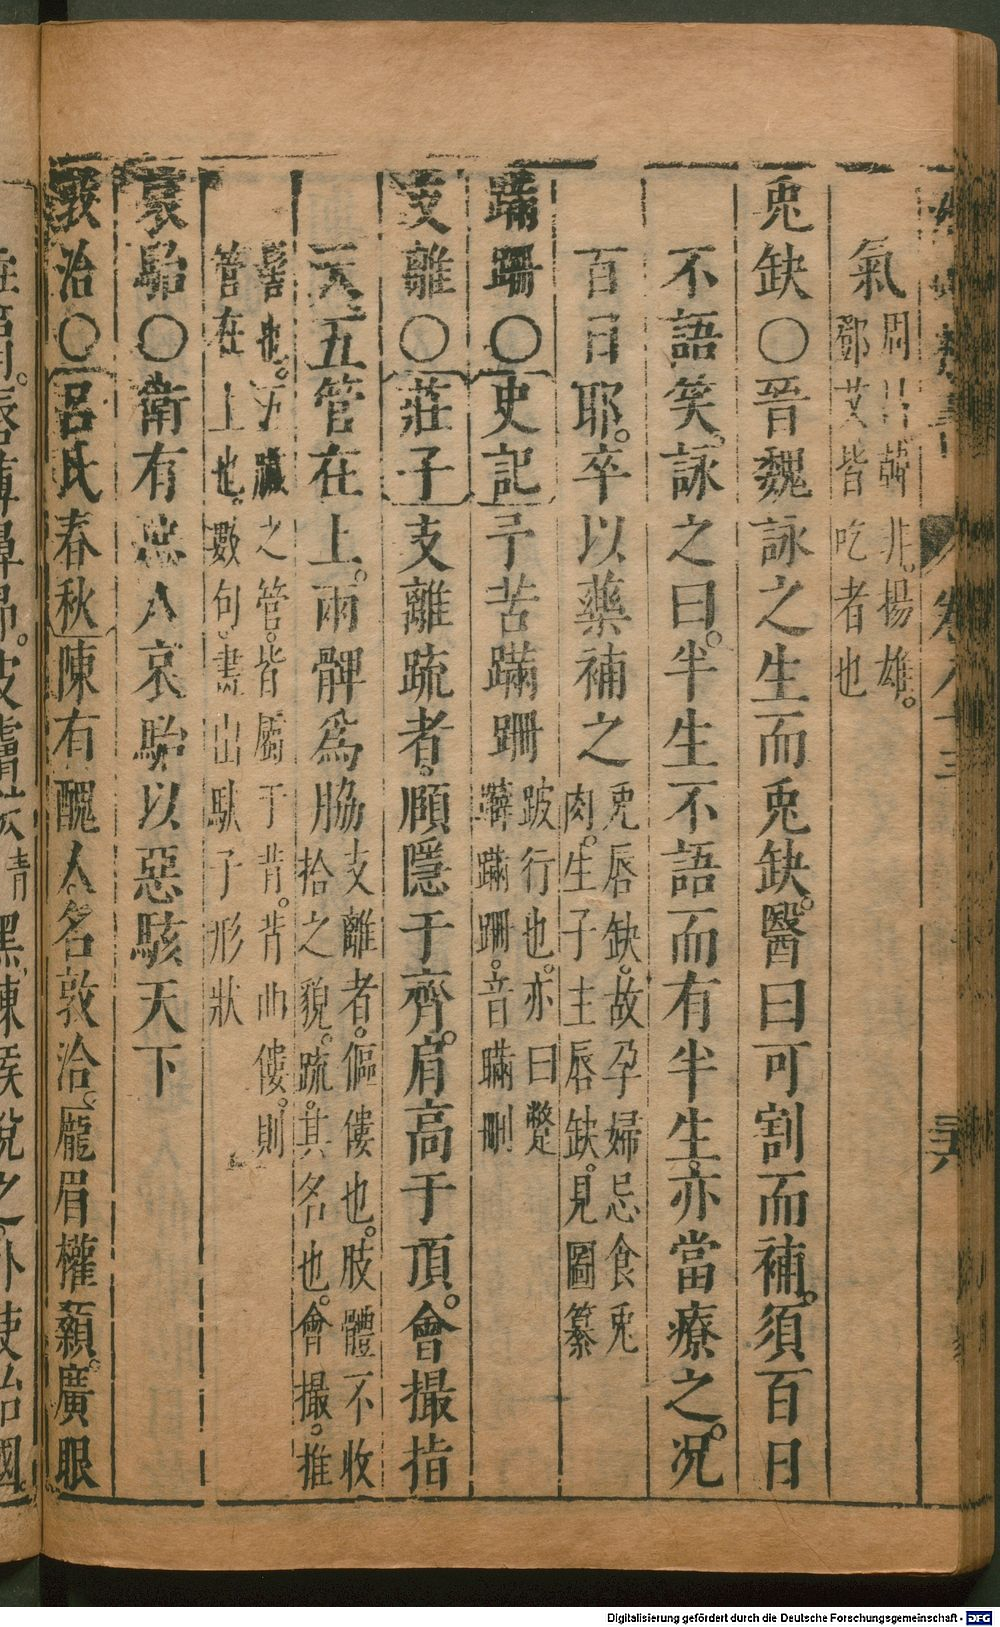 卷八十三 三六
氣周昌韓非。揚雄。鄧艾皆吃者也
兎缺〇晉魏詠之生而兎缺。醫曰可割而補。須百日
不語笑。詠之曰。半生不語而有半生。亦當療之。况
百日耶。卒以藥補之兎唇缺。故孕婦忌食兎肉。生子主唇缺。見圖纂
蹣跚〇史記子苦蹣跚跛行也。亦曰蹩躠蹣跚。音瞞刪
支離〇莊子支離疏者。頤隱于齊。肩高于頂。會撮指
天。五管在上。兩髀爲脇支離者。傴僂也。肢體不收拾之貌。疏。其名也。會撮。椎
髻也。五臟之管。皆屬于背。背曲僂。則管在上也。數句。畫出駄子形狀
哀駘〇衛有惡人哀駘以惡駭天下
敦洽〇呂氏春秋陳有醜人。名敦洽。龎眉權顙。廣眼
黑陳侯悅之。外使治國。
Digitalisierung gefördert durch die Deutsche Forschungsgemeinschaft - DFG